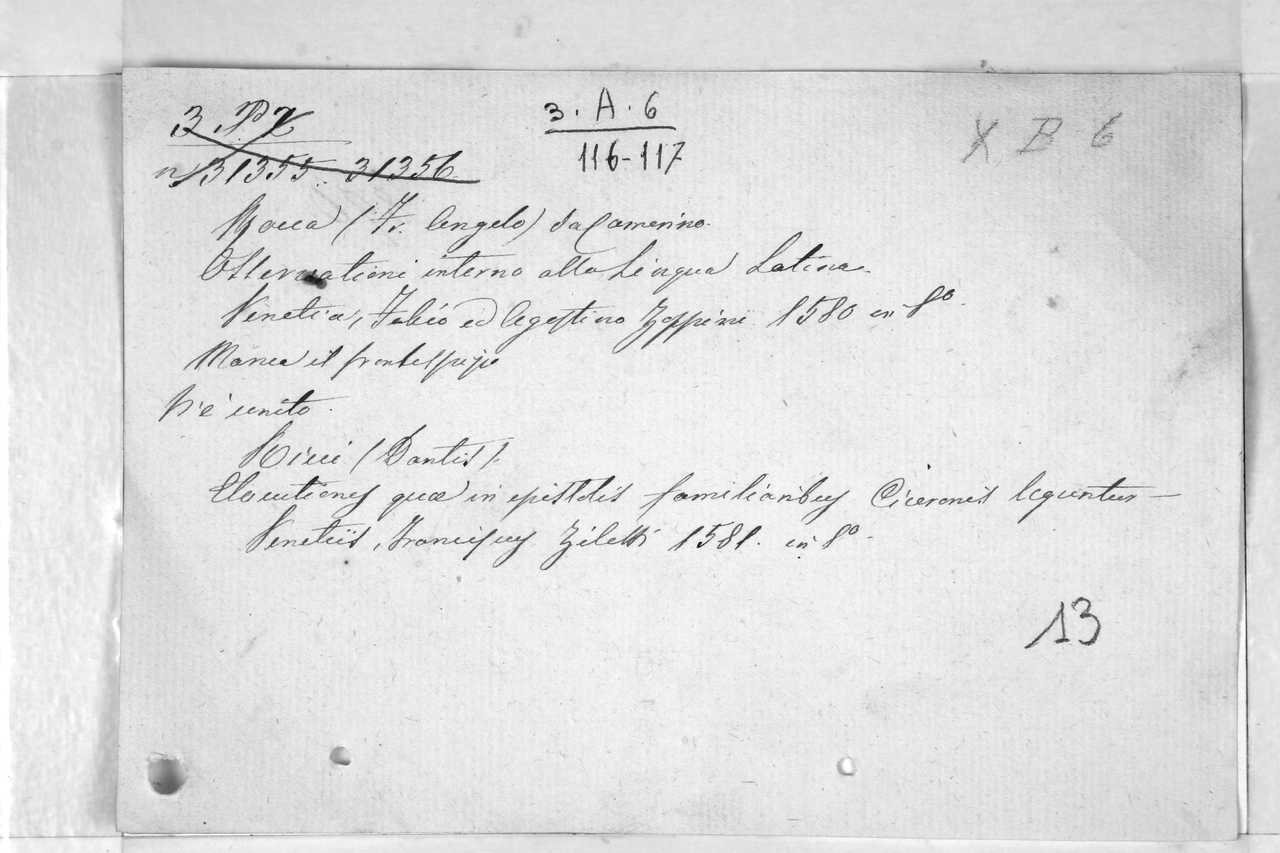 3. P 2
3. A. 6
X B 6
n. 31355. 31356.
116-117
Rocca (Fr. Angelo) da Camerino.
Osservationi intorno alla Lingua Latina.
Venetia, Fabio ed Agostino Zoppini 1580 in 8º.
Manca il frontespizio
Vi è unito.
Ricci (Dantis).
Elocutiones quæ in epistolis familiaribus Ciceronis leguntur —
Venetiis, Franciscus Ziletti 1581. in 8º.
13